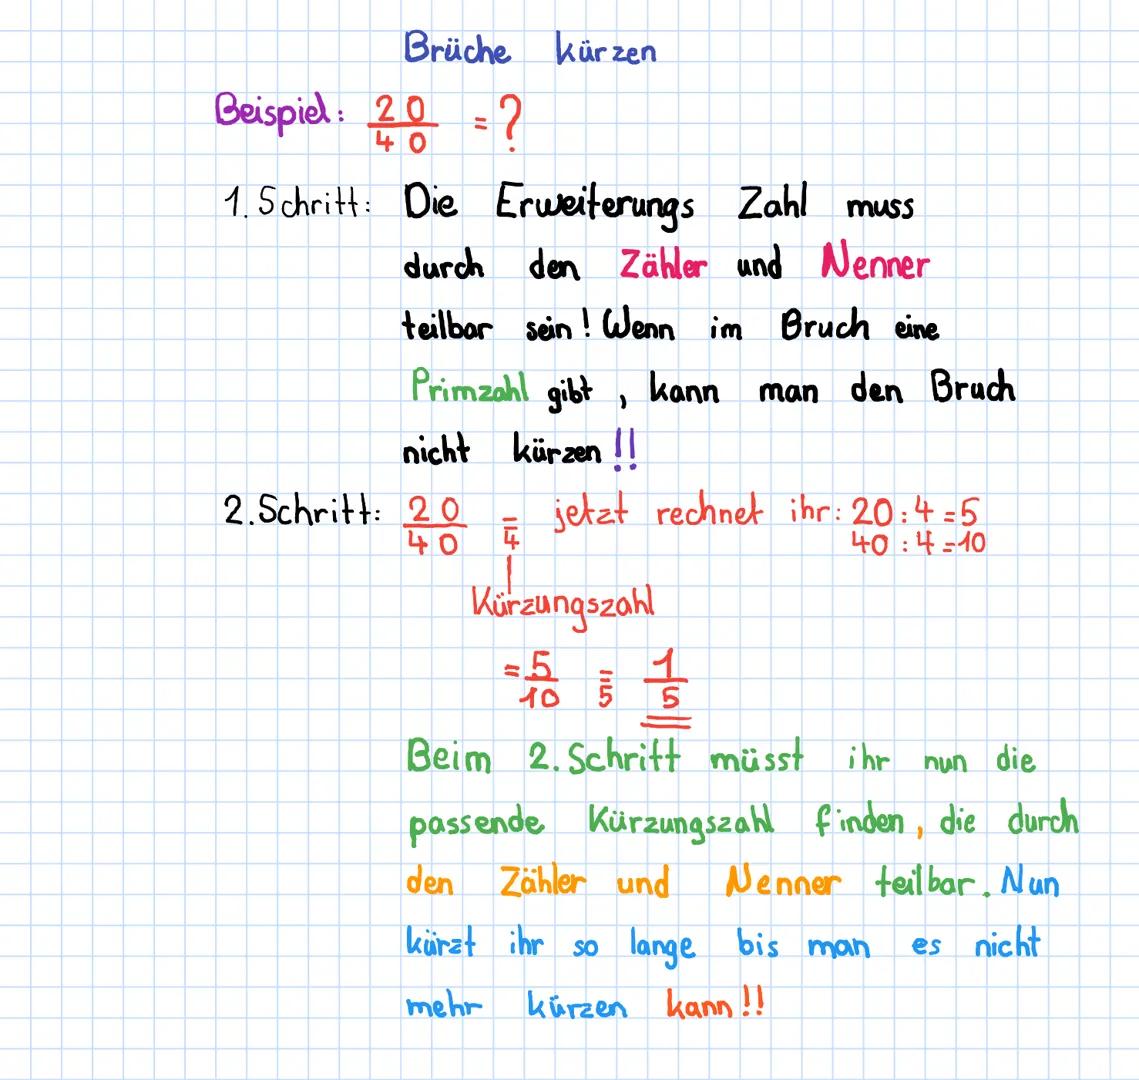 Brüche kürzen
Beispiel: 20/40 = ?
1. Schritt: Die Erweiterungs Zahl muss
durch den Zähler und Nenner
teilbar sein! Wenn im Bruch eine
Primzahl gibt, kann man den Bruch
nicht kürzen!!
2. Schritt: 20/40 =4 jetzt rechnet ihr: 20:4=5
40:4=10
Kürzungszahl
= 5/10 =5 1/5
Beim 2. Schritt müsst ihr nun die
passende Kürzungszahl finden, die durch
den Zähler und Nenner teilbar. Nun
kürzt ihr so lange bis man es nicht
mehr kürzen kann!!